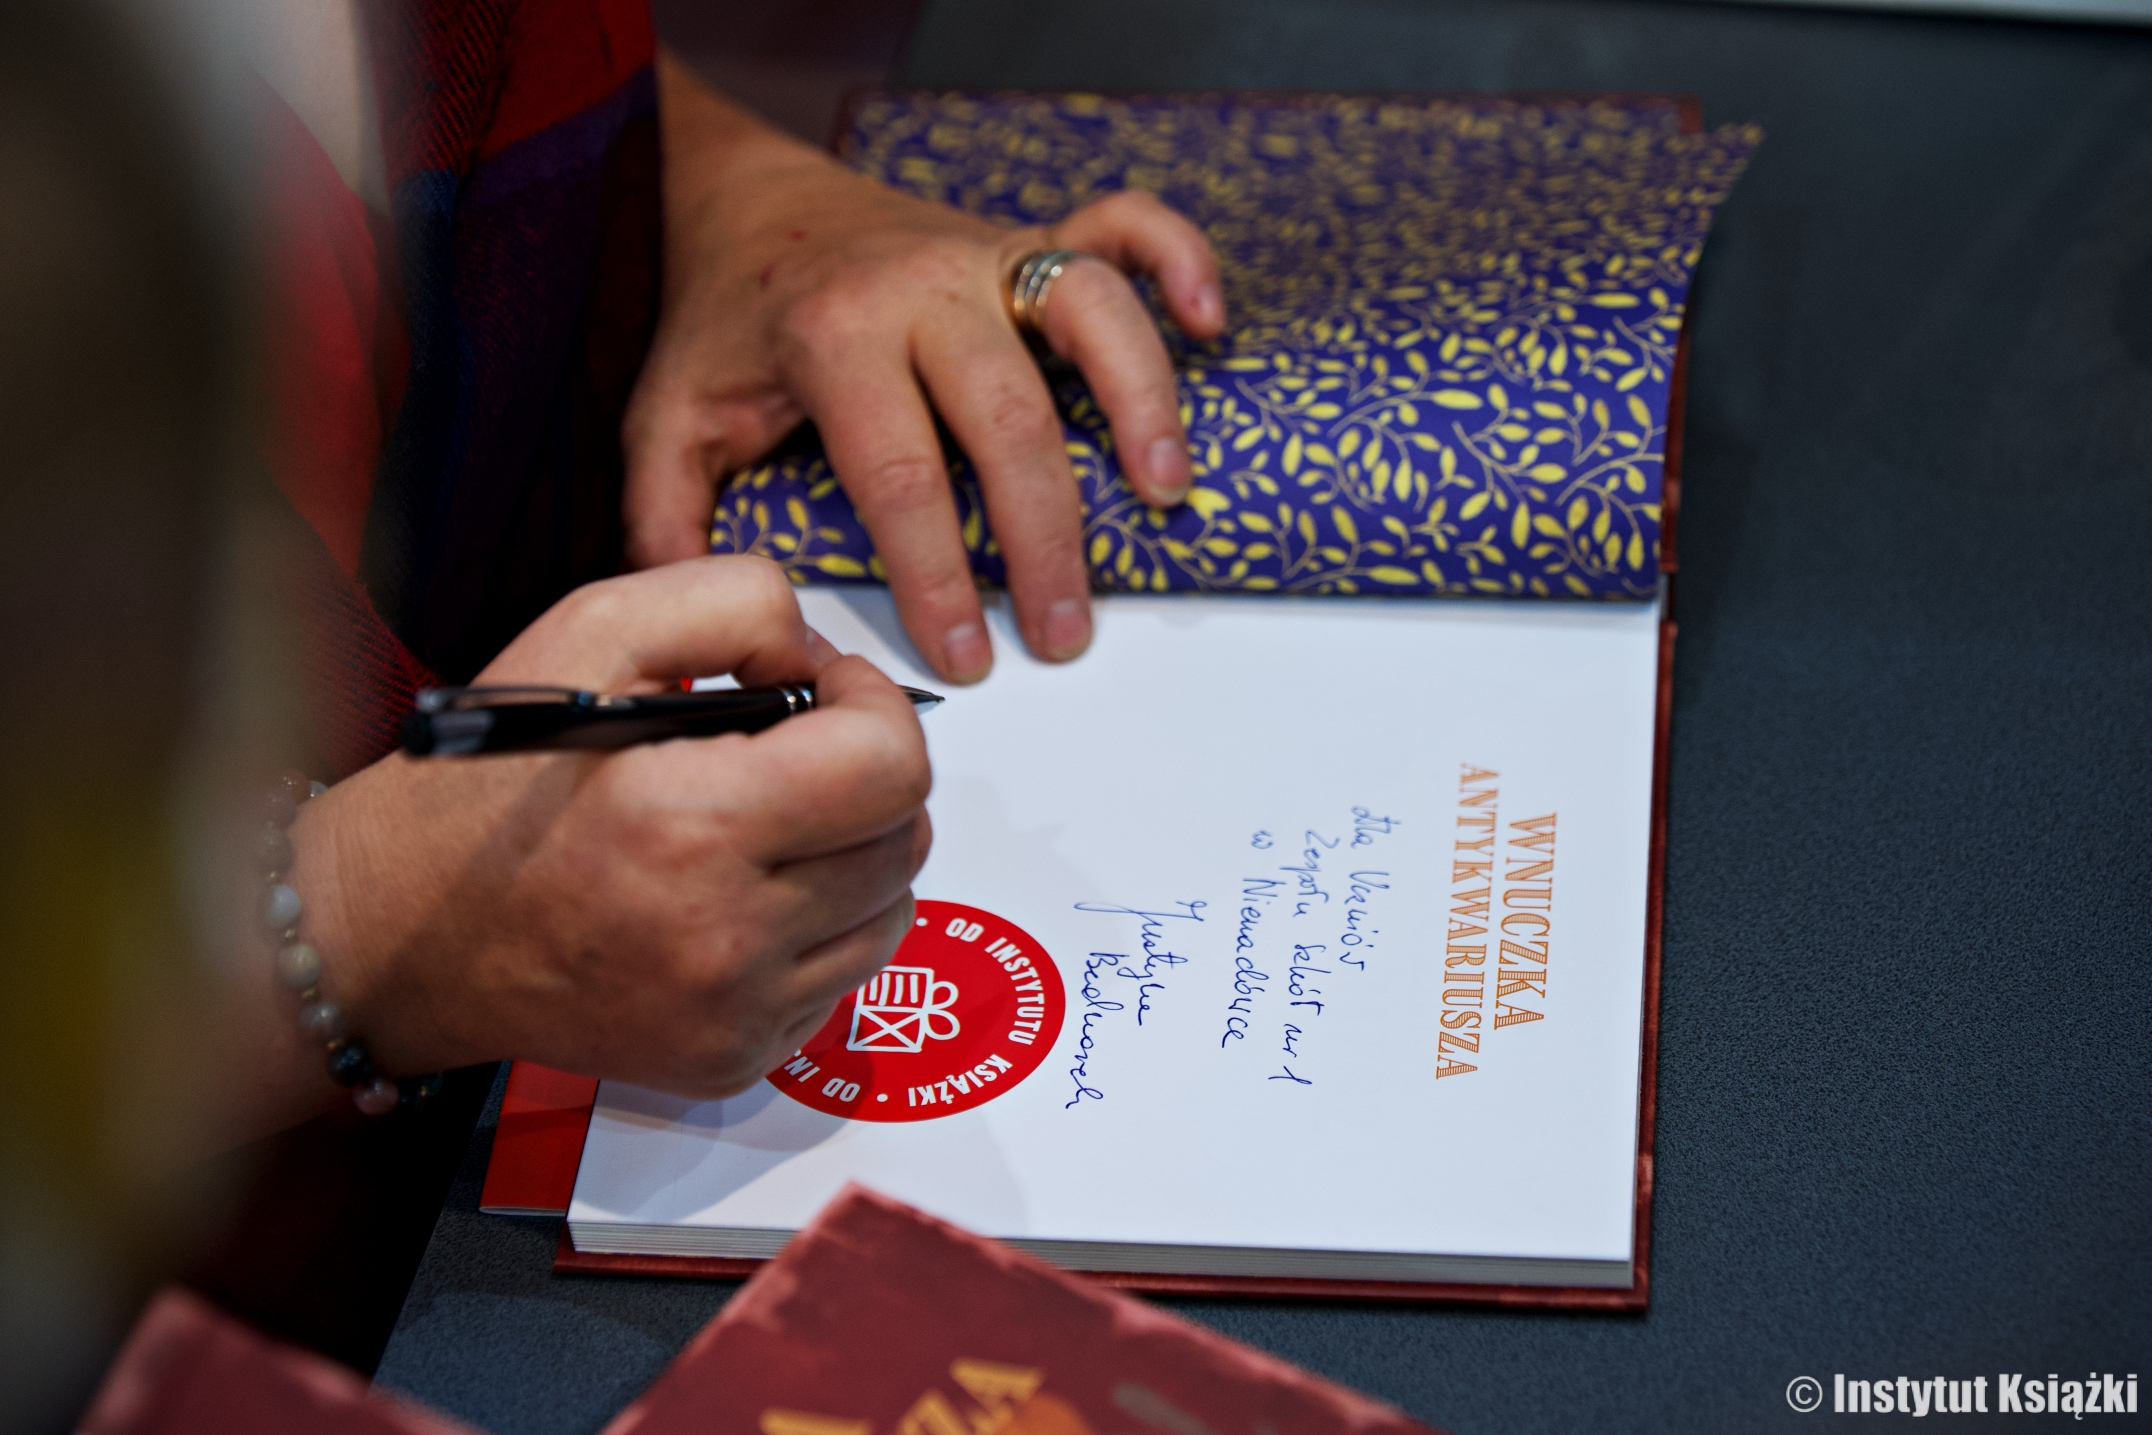 WNUCZKA
ANTYKWARIUSZA
dla Uczniów
Zespołu Szkół nr 1
w Nienadówce
Justyna
Bednarek
• OD INSTYTUTU KSIĄŻKI • OD IN
ZA
© Instytut Książki